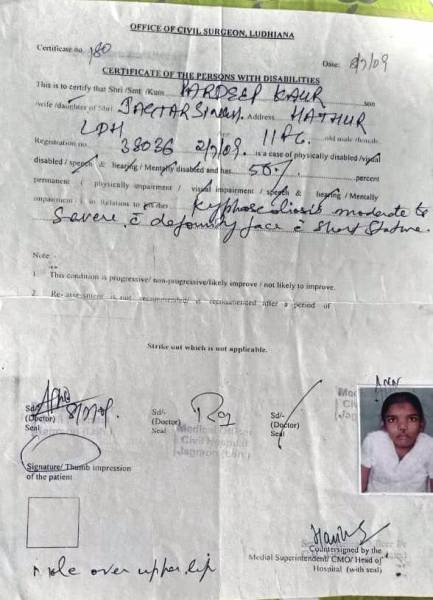 OFFICE OF CIVIL SURGEON, LUDHIANA
Certificate no. 780
Date: 8/7/09
CERTIFICATE OF THE PERSONS WITH DISABILITIES
This is to certify that Shri /Smt /Kum PARDEEP KAUR son
/wife /daughter of Shri JAGTAR SINGH. Address HATHUR
LDH 11 Fe. old male /female
Registration no. 38036 2/7/09. is a case of physically disabled /visual
disabled / speech & hearing / Mentally disabled and has 50% percent
permanent ( physically impairment / visual impairment / speech & hearing / Mentally
impairment ) in Relation to his/her Kyphoscoliosis moderate to
Severe c̄ deformity face c̄ Short Stature.
Note :-
1 This condition is progressive/ non-progressive/likely improve / not likely to improve.
2. Re- assessment is not recommended/ is recommended after a period of
Strike out which is not applicable.
Sd/- Sd/- Sd/-
(Doctor) (Doctor) (Doctor)
Seal Seal Seal
8/7/09.
Medical Officer
Civil Hospital
Jagraon (Ldh.)
Signature/ Thumb impression
of the patient
Countersigned by the
Medial Superintendent/ CMO/ Head of
Hospital (with seal)
Mole over upper lip